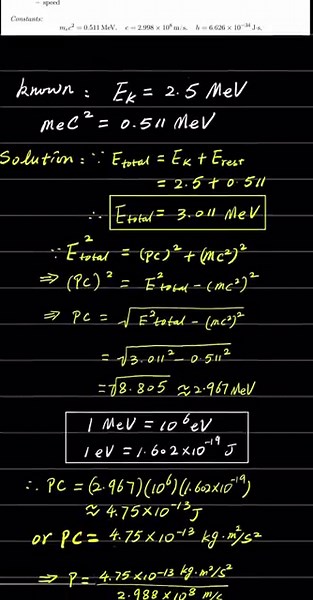 – speed
Constants:
mₑc² = 0.511 MeV. c = 2.998 × 10⁸ m/s. h = 6.626 × 10⁻³⁴ J·s.
known : E_K = 2.5 MeV
meC² = 0.511 MeV
Solution : ∵ Etotal = E_K + Erest
= 2.5 + 0.511
∴ Etotal = 3.011 MeV
∵ E²total = (PC)² + (mc²)²
⇒ (PC)² = E²total − (mc²)²
⇒ PC = √(E²total − (mc²)²)
= √(3.011² − 0.511²)
= √8.805 ≈ 2.967 MeV
1 MeV = 10⁶ eV
1 eV = 1.602×10⁻¹⁹ J
∴ PC = (2.967)(10⁶)(1.602×10⁻¹⁹)
≈ 4.75×10⁻¹³ J
or PC = 4.75×10⁻¹³ kg·m²/s²
⇒ P = 4.75×10⁻¹³ kg·m²/s²
2.988 × 10⁸ m/s